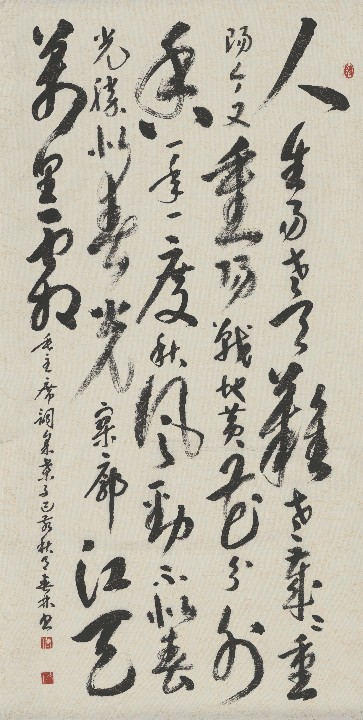 人生易老天難老歲々重
陽今又重陽戰地黃花分外
香一年一度秋風勁不似春
光勝似春光寥廓江天
萬里霜
毛主席詞采桑子己亥秋月春林書